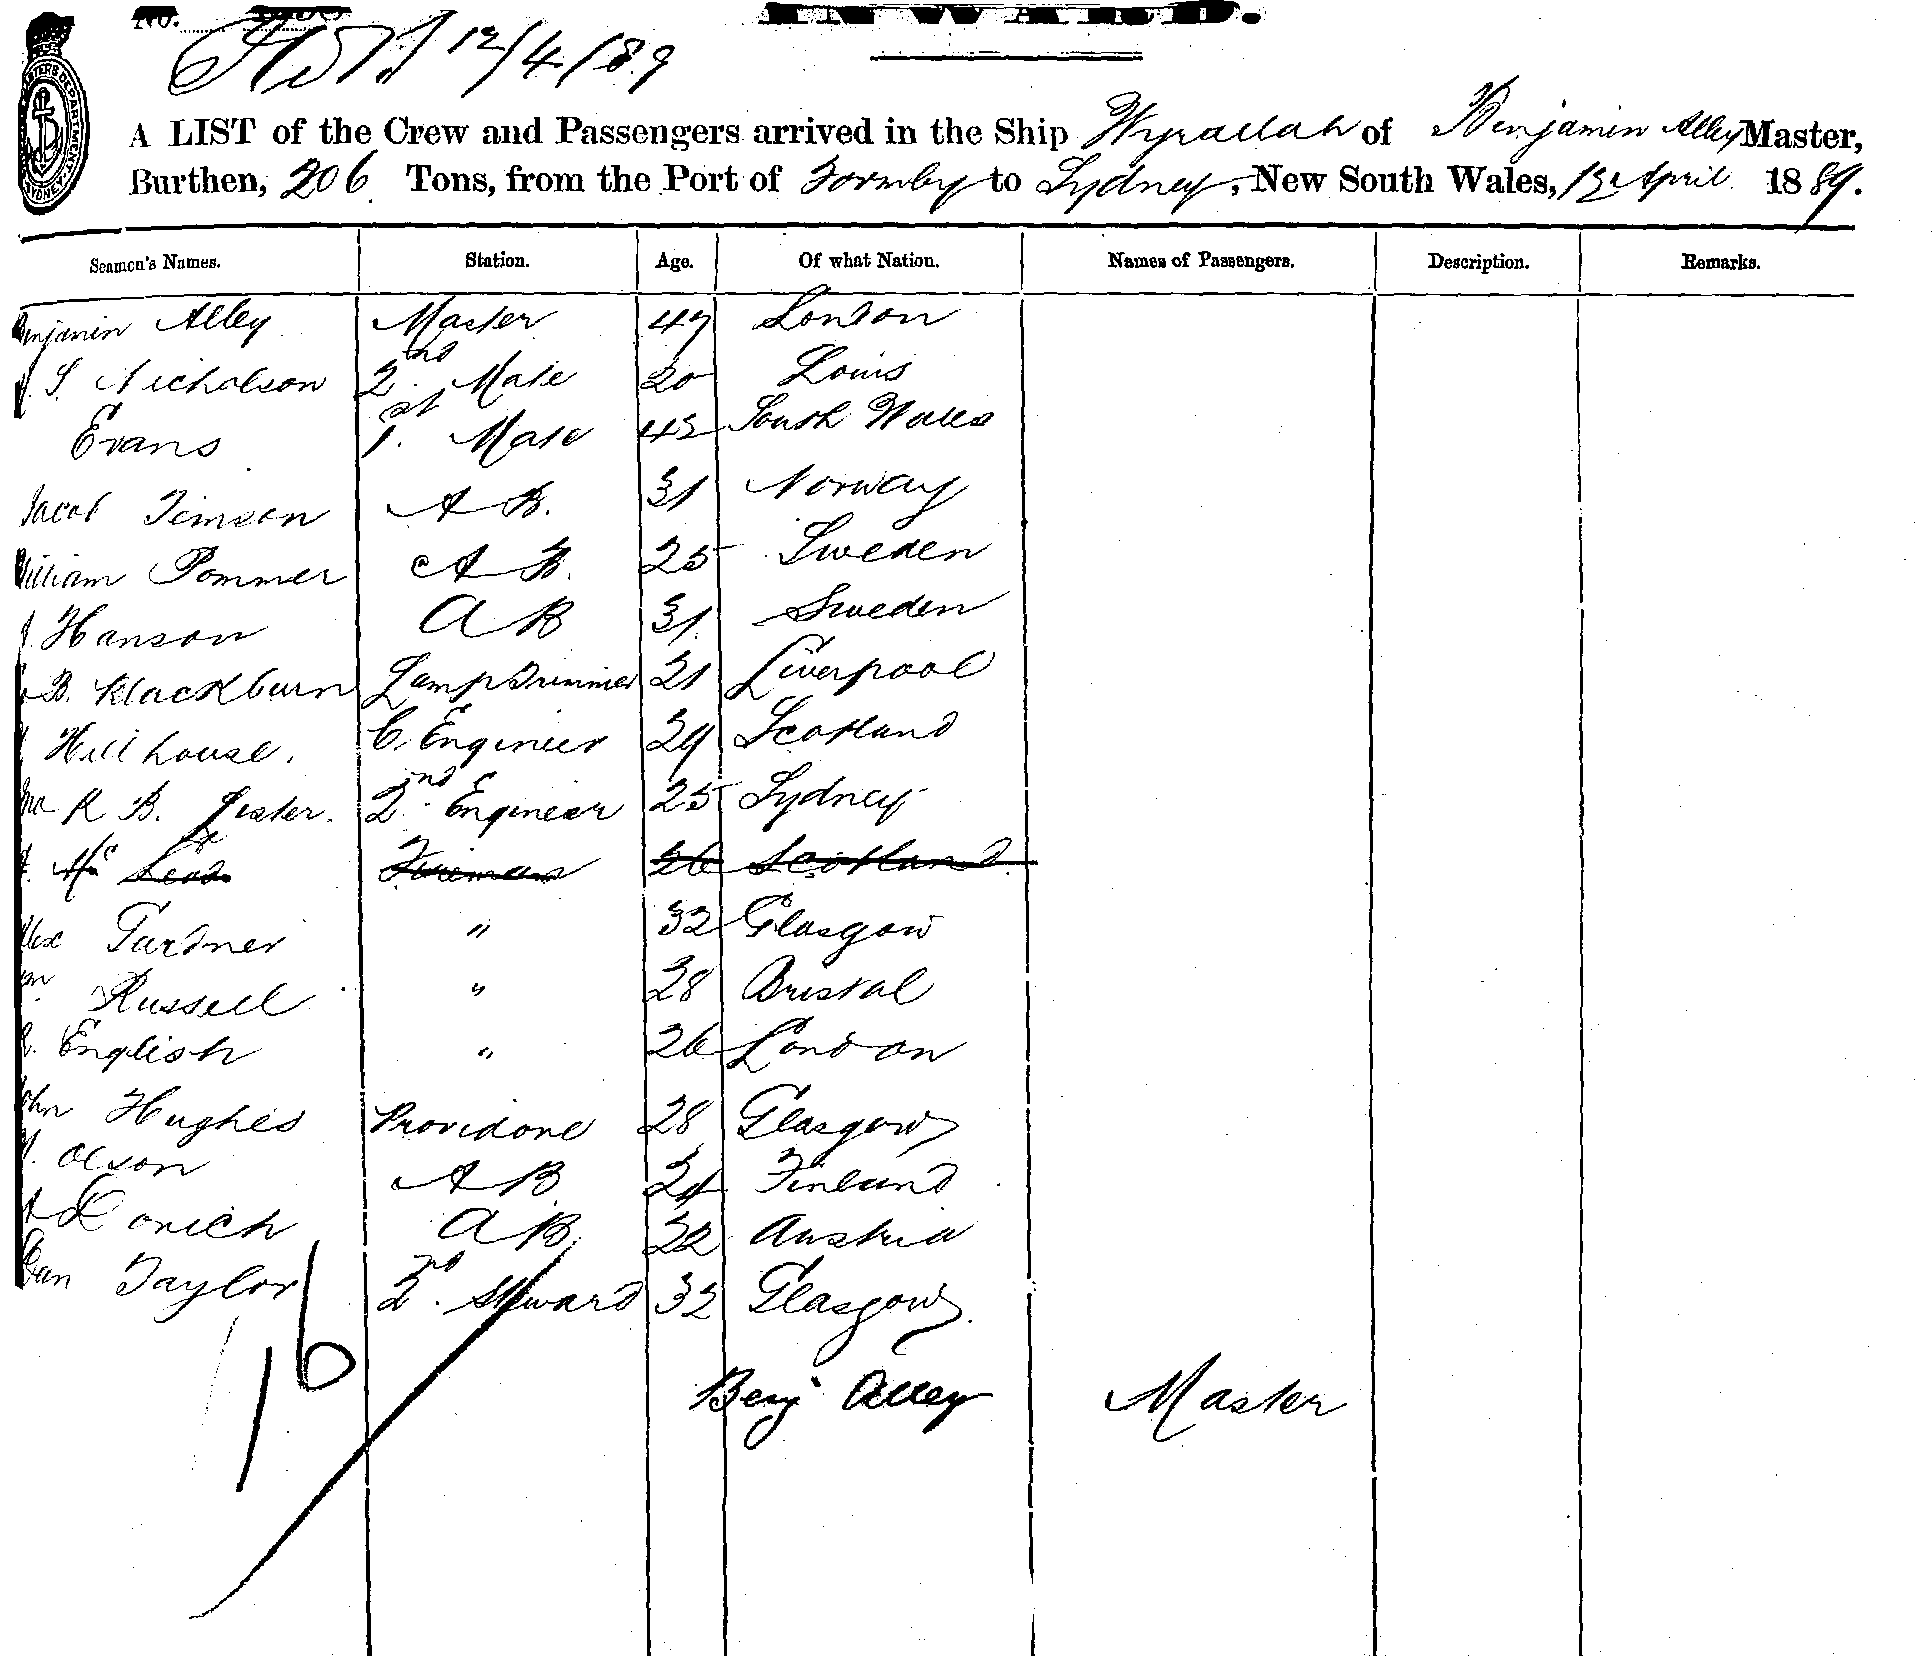 No.
INWARD.
12/4/89
A LIST of the Crew and Passengers arrived in the Ship Wyrallah of Benjamin Alley Master,
Burthen, 206 Tons, from the Port of Formby to Sydney, New South Wales, 12 April 1889.
Seamen's Names. Station. Age. Of what Nation. Names of Passengers. Description. Remarks.
Benjamin Alley Master 47 London
S. Nicholson 2nd Mate 20 Louis
Evans 1st Mate 42 South Wales
Jacob Jemson A B. 31 Norway
William Pommer A B. 25 Sweden
Hanson A B 31 Sweden
B. Blackburn Lamp Trimmer 21 Liverpool
Hillhouse. C. Engineer 29 Scotland
R B. Lister. 2nd Engineer 25 Sydney
Mc Leod Fireman 26 Scotland
Alex Gardner " 32 Glasgow
Wm Russell " 28 Bristol
English " 26 London
John Hughes Providore 28 Glasgow
Olson A B 24 Finland
A B. 22 Austria
Dan Taylor 2nd Steward 32 Glasgow.
16
Benj Alley Master